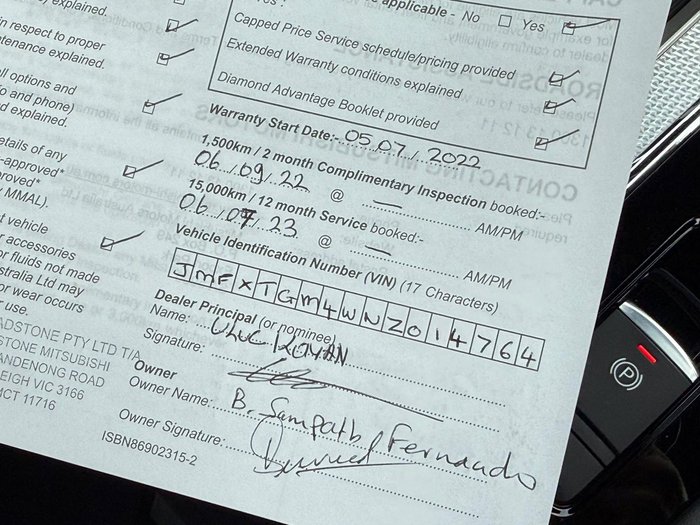 y explained.
n respect to proper
tenance explained.
ll options and
o and phone)
d explained.
etails of any
-approved*
oved*
MMAL).
t vehicle
r accessories
r fluids not made
stralia Ltd may
or wear occurs
r use.
ADSTONE PTY LTD T/A
STONE MITSUBISHI
ANDENONG ROAD
EIGH VIC 3166
MCT 11716
applicable - No Yes
Capped Price Service schedule/pricing provided
Extended Warranty conditions explained
Diamond Advantage Booklet provided
Warranty Start Date:- 05.07.2022
1,500km / 2 month Complimentary Inspection booked:-
06/09/22 @ — AM/PM
15,000km / 12 month Service booked:-
06/07/23 @ — AM/PM
Vehicle Identification Number (VIN) (17 Characters)
JMFXTGM4WNZ014764
Dealer Principal (or nominee)
Name:
Signature:
Owner
Owner Name: B. Sampath Fernando
Owner Signature:
ISBN86902315-2
P